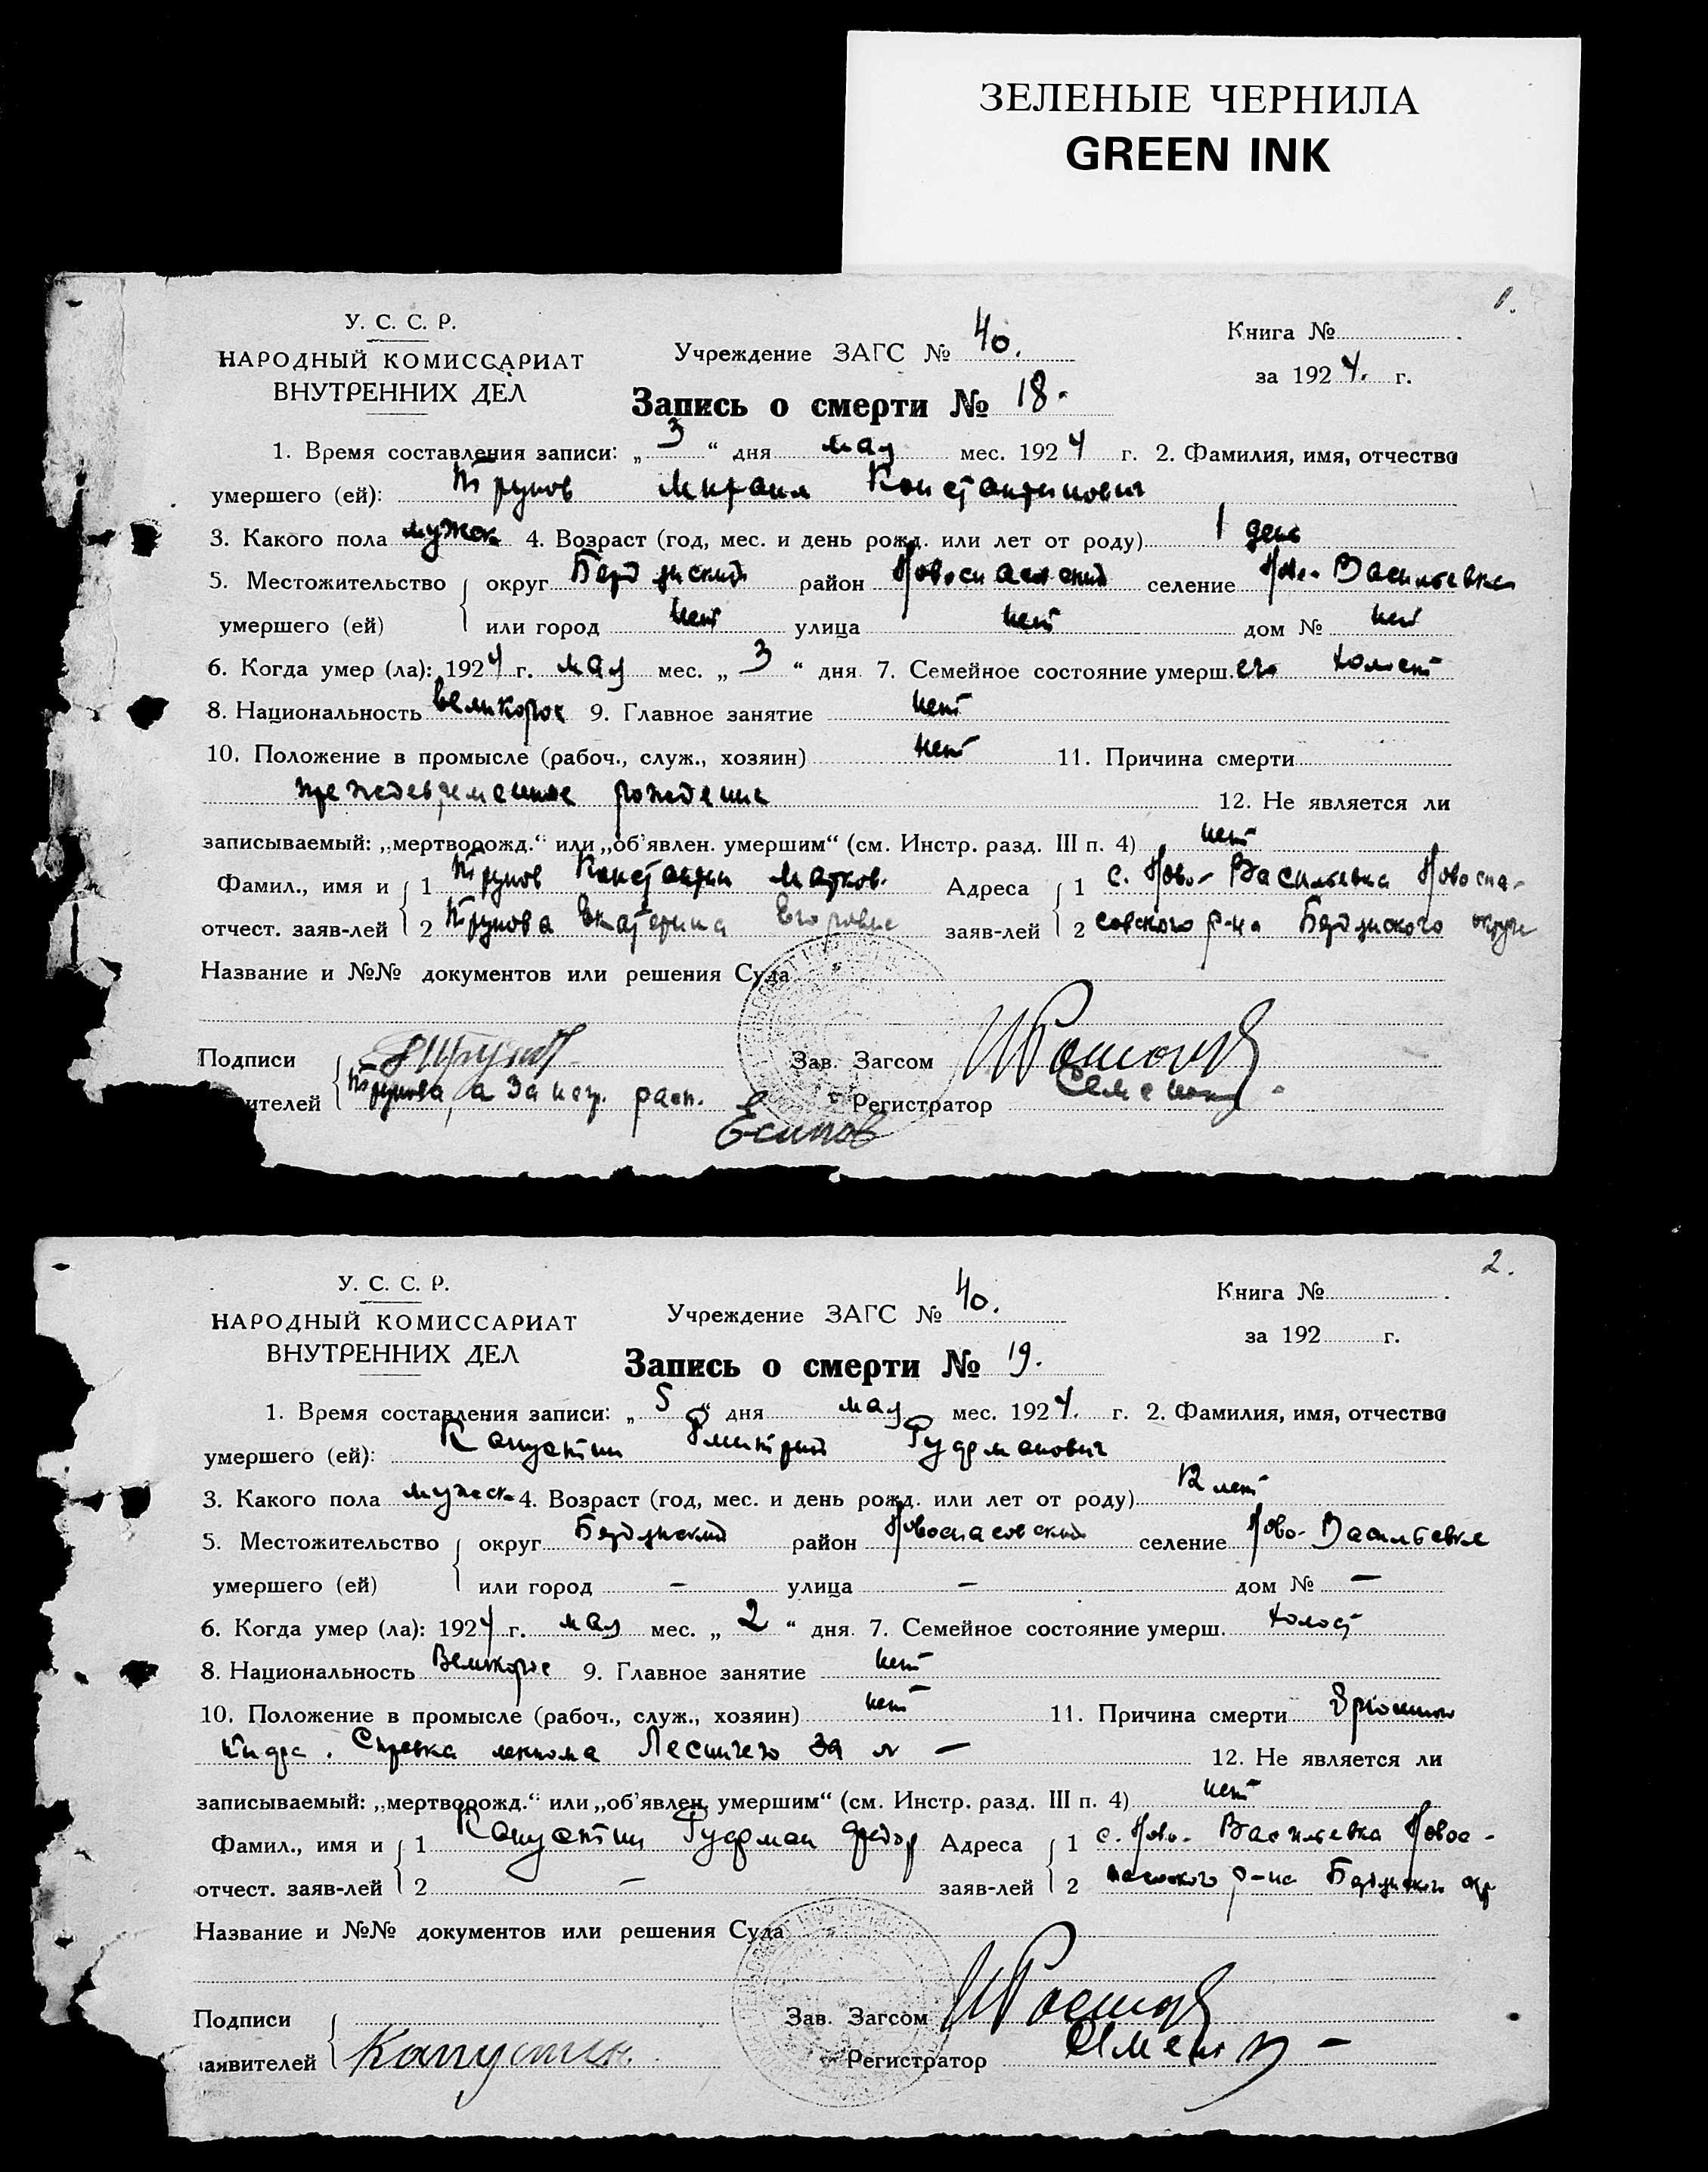 ЗЕЛЕНЫЕ ЧЕРНИЛА
GREEN INK
1.
У. С. С. Р.
НАРОДНЫЙ КОМИССАРИАТ
ВНУТРЕННИХ ДЕЛ
Учреждение ЗАГС № 40.
Книга №
за 1924. г.
Запись о смерти № 18.
1. Время составления записи: „ 3 “ дня мая мес. 1924 г. 2. Фамилия, имя, отчество
умершего (ей): Трунов Михаил Константинович
3. Какого пола мужск. 4. Возраст (год, мес. и день рожд. или лет от роду) 1 день
5. Местожительство округ Бердянский район Новоспасовский селение Ново-Васильевка
умершего (ей) или город нет улица нет дом № нет
6. Когда умер (ла): 1924 г. мая мес. „ 3 “ дня 7. Семейное состояние умерш. его холост
8. Национальность великорос 9. Главное занятие нет
10. Положение в промысле (рабоч., служ., хозяин) нет 11. Причина смерти
преждевременное рождение 12. Не является ли
записываемый: „мертворожд.“ или „об'явлен. умершим“ (см. Инстр. разд. III п. 4) нет
Фамил., имя и 1 Трунов Константин Адреса 1 с. Ново-Васильевка Новоспа-
отчест. заяв-лей 2 Трунова Екатерина Егоровна заяв-лей 2 совского р-на Бердянского округа
Название и №№ документов или решения Суда
Подписи Зав. Загсом
ителей Трунова, а за негр. расп. Регистратор
Есипов
2.
У. С. С. Р.
НАРОДНЫЙ КОМИССАРИАТ
ВНУТРЕННИХ ДЕЛ
Учреждение ЗАГС № 40.
Книга №
за 192 г.
Запись о смерти № 19.
1. Время составления записи: „ 5 “ дня мая мес. 1924. г. 2. Фамилия, имя, отчество
умершего (ей): Капустин Дмитрий
3. Какого пола мужск. 4. Возраст (год, мес. и день рожд. или лет от роду) 12 лет
5. Местожительство округ Бердянский район Новоспасовский селение Ново-Васильевка
умершего (ей) или город – улица – дом № –
6. Когда умер (ла): 1924 г. мая мес. „ 2 “ дня 7. Семейное состояние умерш. холост
8. Национальность Великорос 9. Главное занятие нет
10. Положение в промысле (рабоч., служ., хозяин) нет 11. Причина смерти Брюшной
тиф. Справка лекпома за № – 12. Не является ли
записываемый: „мертворожд.“ или „об'явлен. умершим“ (см. Инстр. разд. III п. 4) нет
Фамил., имя и 1 Капустин Адреса 1 с. Ново-Васильевка Новос-
отчест. заяв-лей 2 – заяв-лей 2 пасовского р-на Бердянского окр
Название и №№ документов или решения Суда
Подписи Зав. Загсом
заявителей Капустин. Регистратор